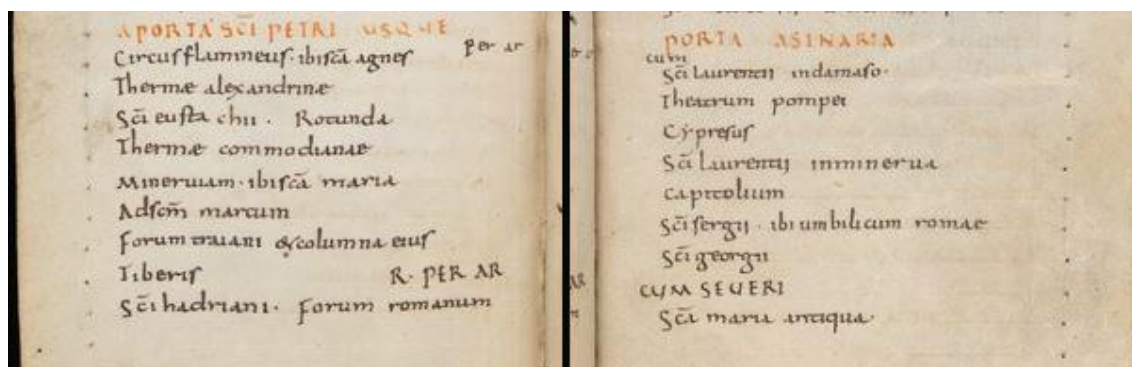 A PORTA SC̄I PETRI USQUE
Circus flamineus· ibi sc̄a agnes per ar
Thermæ alexandrinæ
Sc̄i eustachii · Rotunda
Thermæ commodianae
Mineruiam· ibi sc̄a maria
Ad scm̄ marcum
Forum traiani & columna eius
Tiberis R· PER AR
Sc̄i hadriani· Forum romanum
PORTA ASINARIA
cum
Sc̄i Laurentii in damaso·
Theatrum pompei
Cypresus
Sc̄i Laurentii in minerua
Capitolium
Sc̄i sergii · ibi umbilicum romae
Sc̄i georgii
CUM SEUERI
Sc̄a maria antiqua·